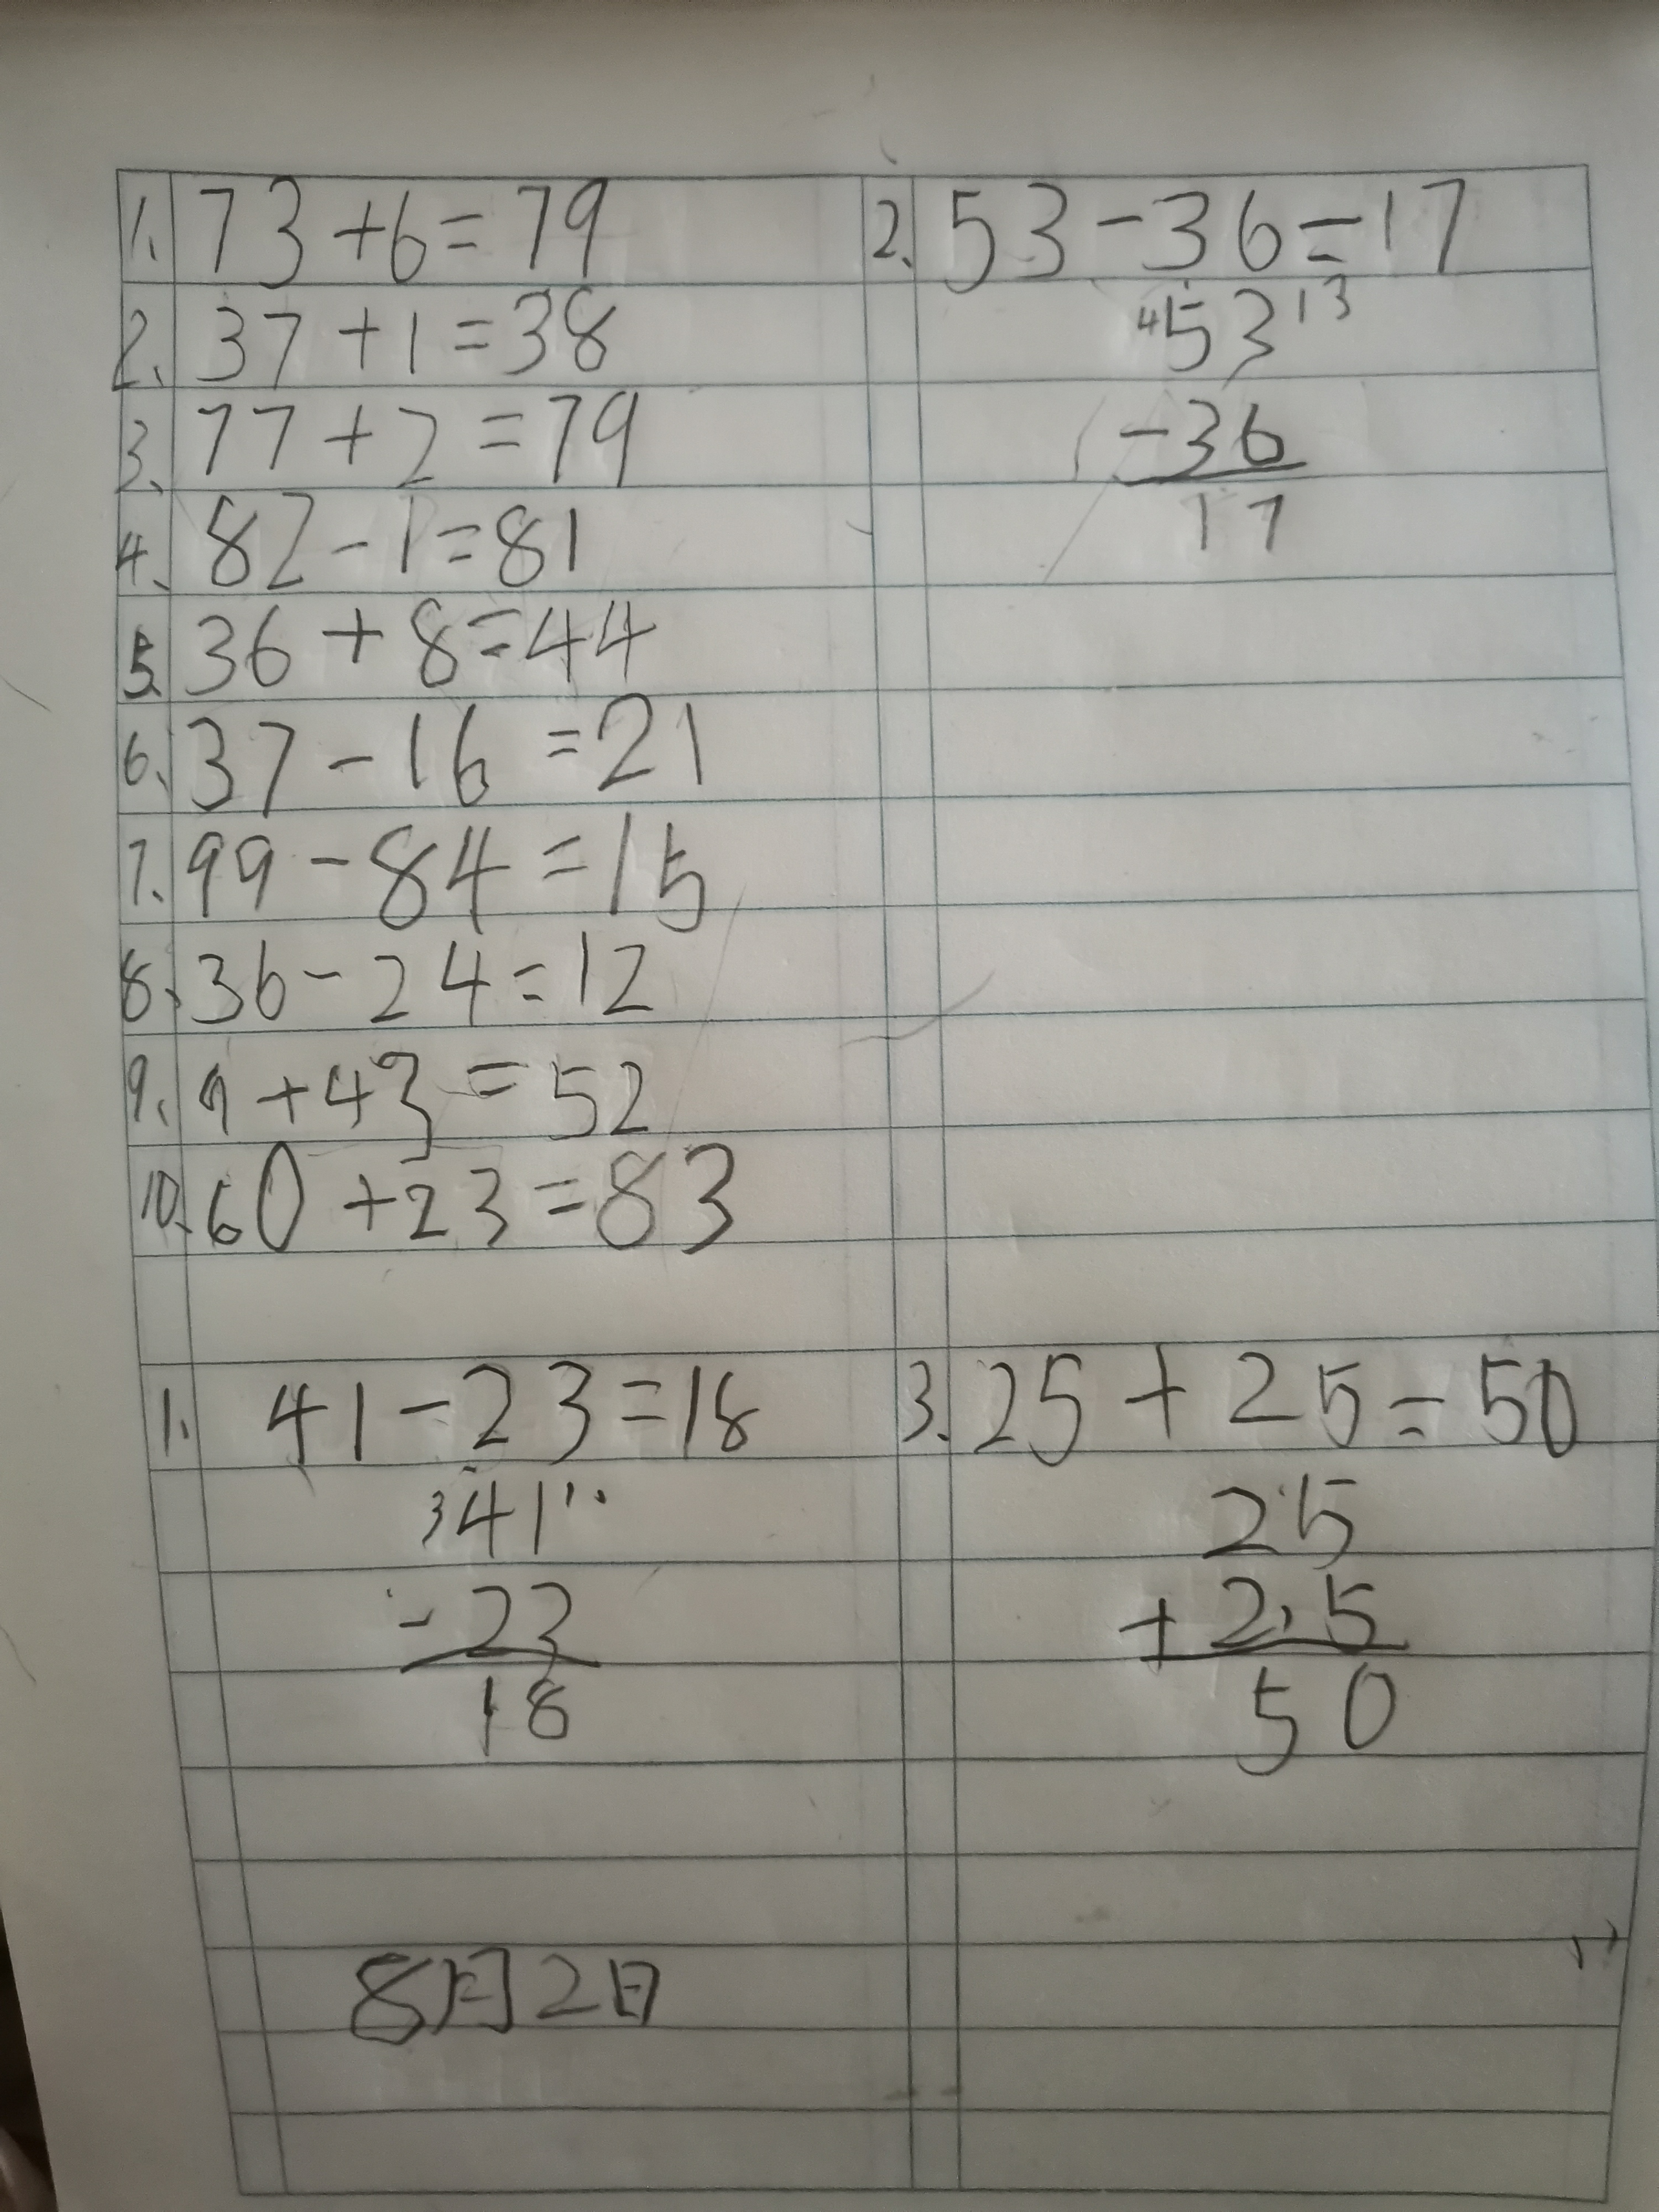 1. 73+6=79
2. 37+1=38
3. 77+2=79
4. 82-1=81
5. 36+8=44
6. 37-16=21
7. 99-84=15
8. 36-24=12
9. 9+43=52
10. 60+23=83
1. 41-23=18
3 41 11
-23
18
2. 53-36=17
4 53 13
-36
17
3. 25+25=50
25
+25
50
8月2日